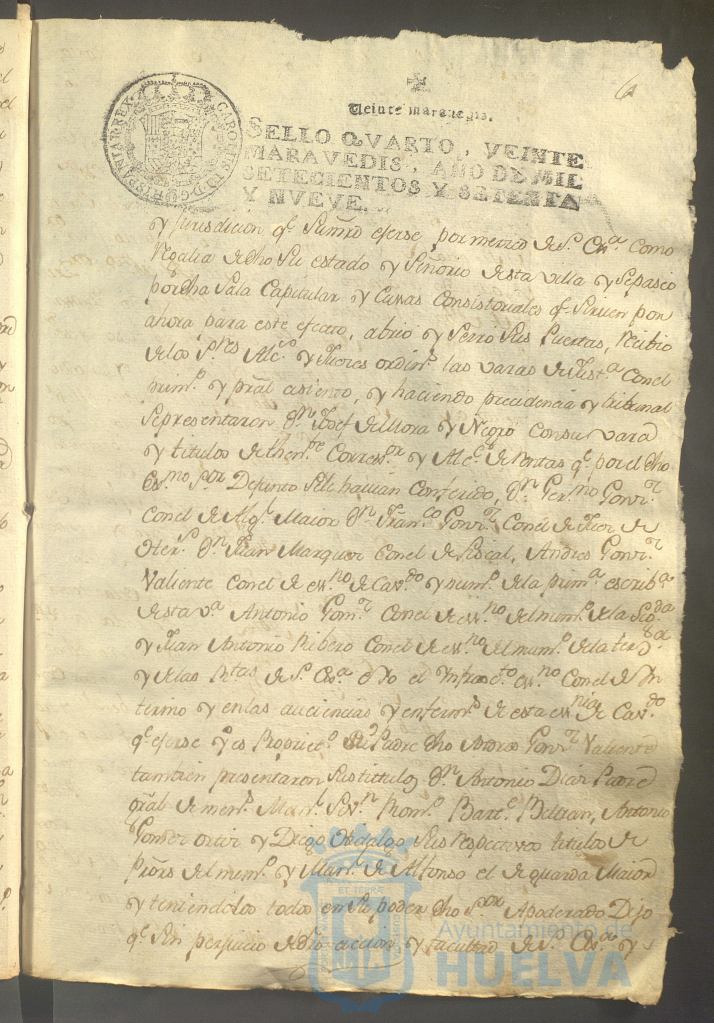 6
Veinte maravedis.
SELLO QVARTO, VEINTE
MARAVEDIS, AÑO DE MIL
SETECIENTOS Y SETENTA
Y NVEVE.
CAROLUS III D.G. HISPANIAR. REX
y Jurisdicion q.e Su md exerse por merced de S. Ex.a Como
Regalia de dho Su estado y Señorio de esta villa y Se paseo
por dha Sala Capitular y Casas Consistoriales q.e Sirven por
ahora para este efecto, abrio y Serro Sus Puertas, Recibio
de los S.res Alc.s y Jueces ordin.s las varas de Just.a Con el
prim.o y pral asiento, y haciendo precidencia y tribunal
Se presentaron D.n Josef de Mora y Negro Con su vara
y titulos de then.te Correx.r y Alc.e de Sentas q.e por el dho
Ex.mo S.or Defunto Se le havian Conferido, D.n Ger.mo Gonz.z
Con el de Alg.l Maior D.n Fran.co Gonz.z Con el de Juez de
D.n Juan Marquez Con el de Fiscal, Andres Gonz.z
Valiente con el de es.no de Cav.do y num.o de la prim.a escrib.a
de esta v.a Antonio Gom.z Con el de es.no del num.o de la Seg.da
y Juan Antonio Ribero Con el de es.no del num.o de la ter.a
y de las Rentas de S. Ex.a e Yo el Infraes.to es.no Con el de In
terino y en las auciencias y enferm.s de esta es.nia de Cav.do
q.e exerse y es Propriet.o mi Padre dho Andres Gonz.z Valiente
tambien presentaron Sus titulos D.n Antonio Diaz Padre
gral de men.s Man.l Sev.n Rom.o Bart.e Beltran, Antonio
Gomez ortiz y Diego Hidalgo Sus respectivos titulos de
Pror.s del num.o y Man.l de Alfonso el de guarda Maior
y teniendolos todos en Su poder dho S.or Apoderado Dijo
q.e Sin perjuicio de la accion y facultad de S. Ex.a y
Ayuntamiento de
HUELVA